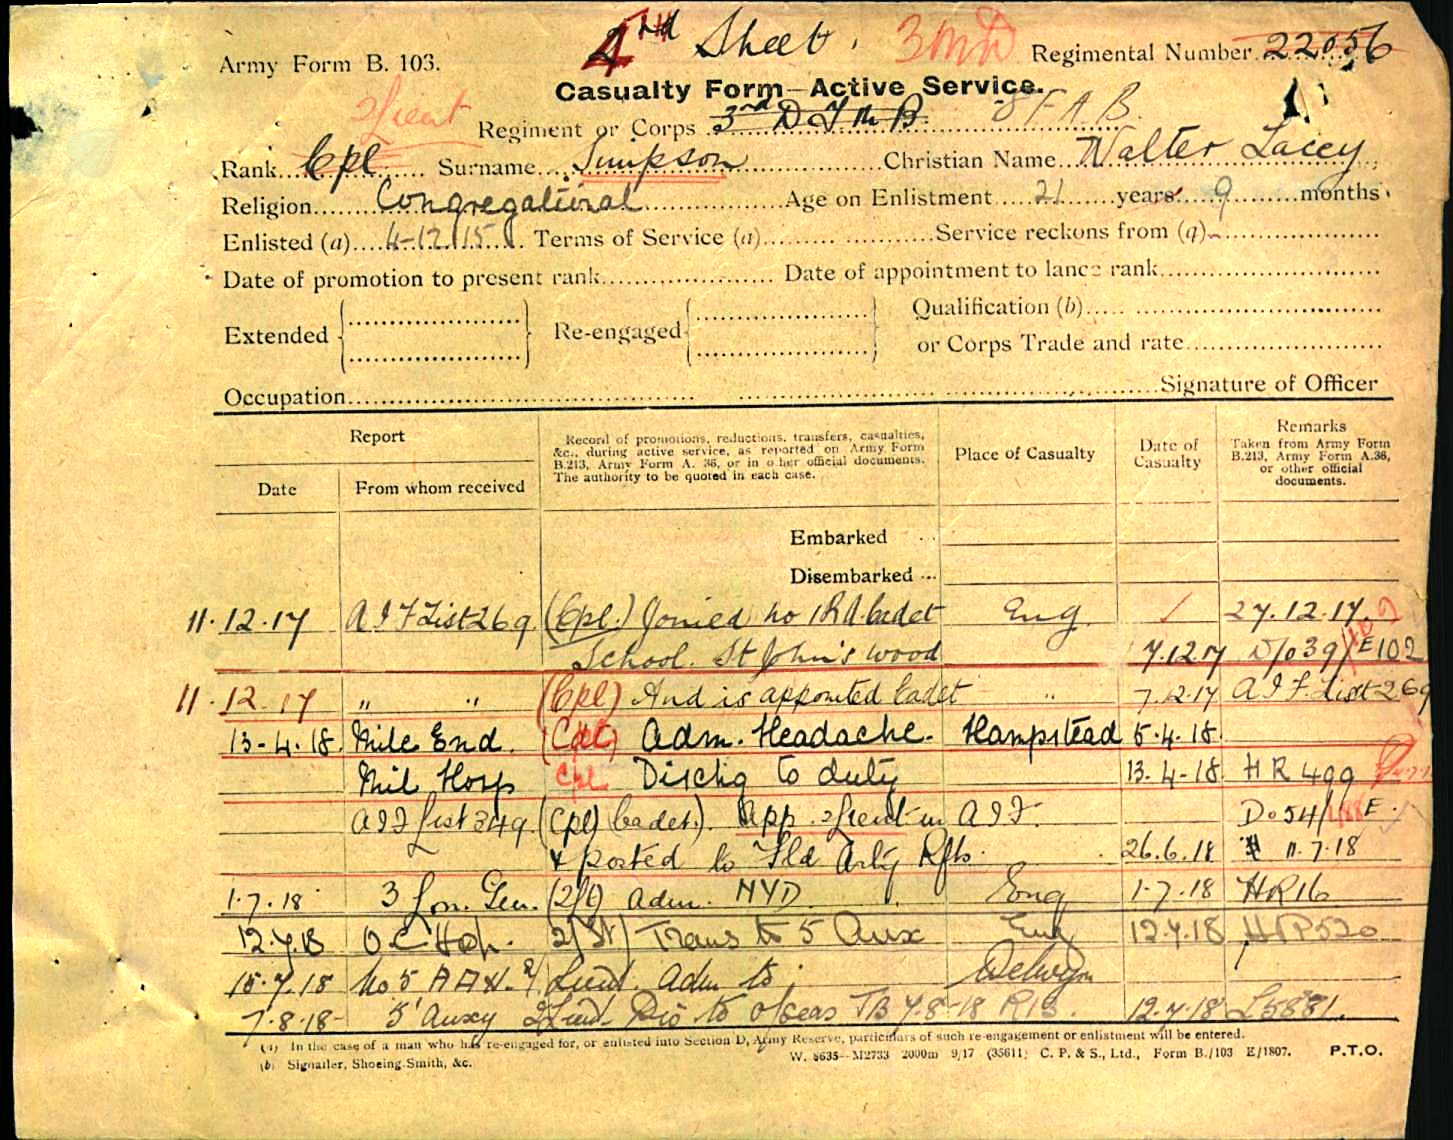 4TH 2nd Sheet. 3MD Regimental Number 22056
Army Form B. 103.
Casualty Form—Active Service.
2/Lieut Regiment or Corps 3rd D T M B 8 F A B.
Rank Cpl Surname Simpson Christian Name Walter Lacey
Religion Congregational Age on Enlistment 21 years 9 months
Enlisted (a) 4-12-15 Terms of Service (a) Service reckons from (a)
Date of promotion to present rank Date of appointment to lance rank
Extended Re-engaged Qualification (b)
or Corps Trade and rate
Occupation Signature of Officer
Report
Date From whom received
Record of promotions, reductions, transfers, casualties,
&c., during active service, as reported on Army Form
B.213, Army Form A. 36, or in other official documents.
The authority to be quoted in each case.
Place of Casualty
Date of
Casualty
Remarks
Taken from Army Form
B.213, Army Form A.36,
or other official
documents.
Embarked
Disembarked
11.12.17 A I F List 269 (Cpl.) Joined No 1 R A Cadet Eng 27.12.17
School. St John's Wood 7.12.17 D/o 39/ E 102
11.12.17 " " (Cpl) And is appointed Cadet " 7.12.17 A I F. List 269
13-4.18. Mile End. (Cdt) Adm. Headache. Hampstead 5.4.18.
Mil Hosp Cpl Dischg to duty 13.4-18. H R 499
A I F List 349 (Cpl) Cadet.). App. 2/Lieut in A I F. Do 54/ E
& posted to Fld Arty Rfts. 26.6.18 11.7.18
1.7.18 3 Lon. Gen. (2/Lt) Adm. NYD. Eng 1.7.18 HR16
12.7.18 O C Hosp. 2/Lt) Trans to 5 Aux Eng 12.7.18 HR520
15.7.18 No 5 A A H. Lieut. Adm to
7.8.18- 5 Auxy 2Lieut. Dis to O/seas TB 7.8-18 12.7.18
(a) In the case of a man who has re-engaged for, or enlisted into Section D, Army Reserve, particulars of such re-engagement or enlistment will be entered.
(b) Signaller, Shoeing-Smith, &c. W. 8635—M2733 2000m 9/17 (35611) C. P. & S., Ltd., Form B./103 E/1807. P.T.O.